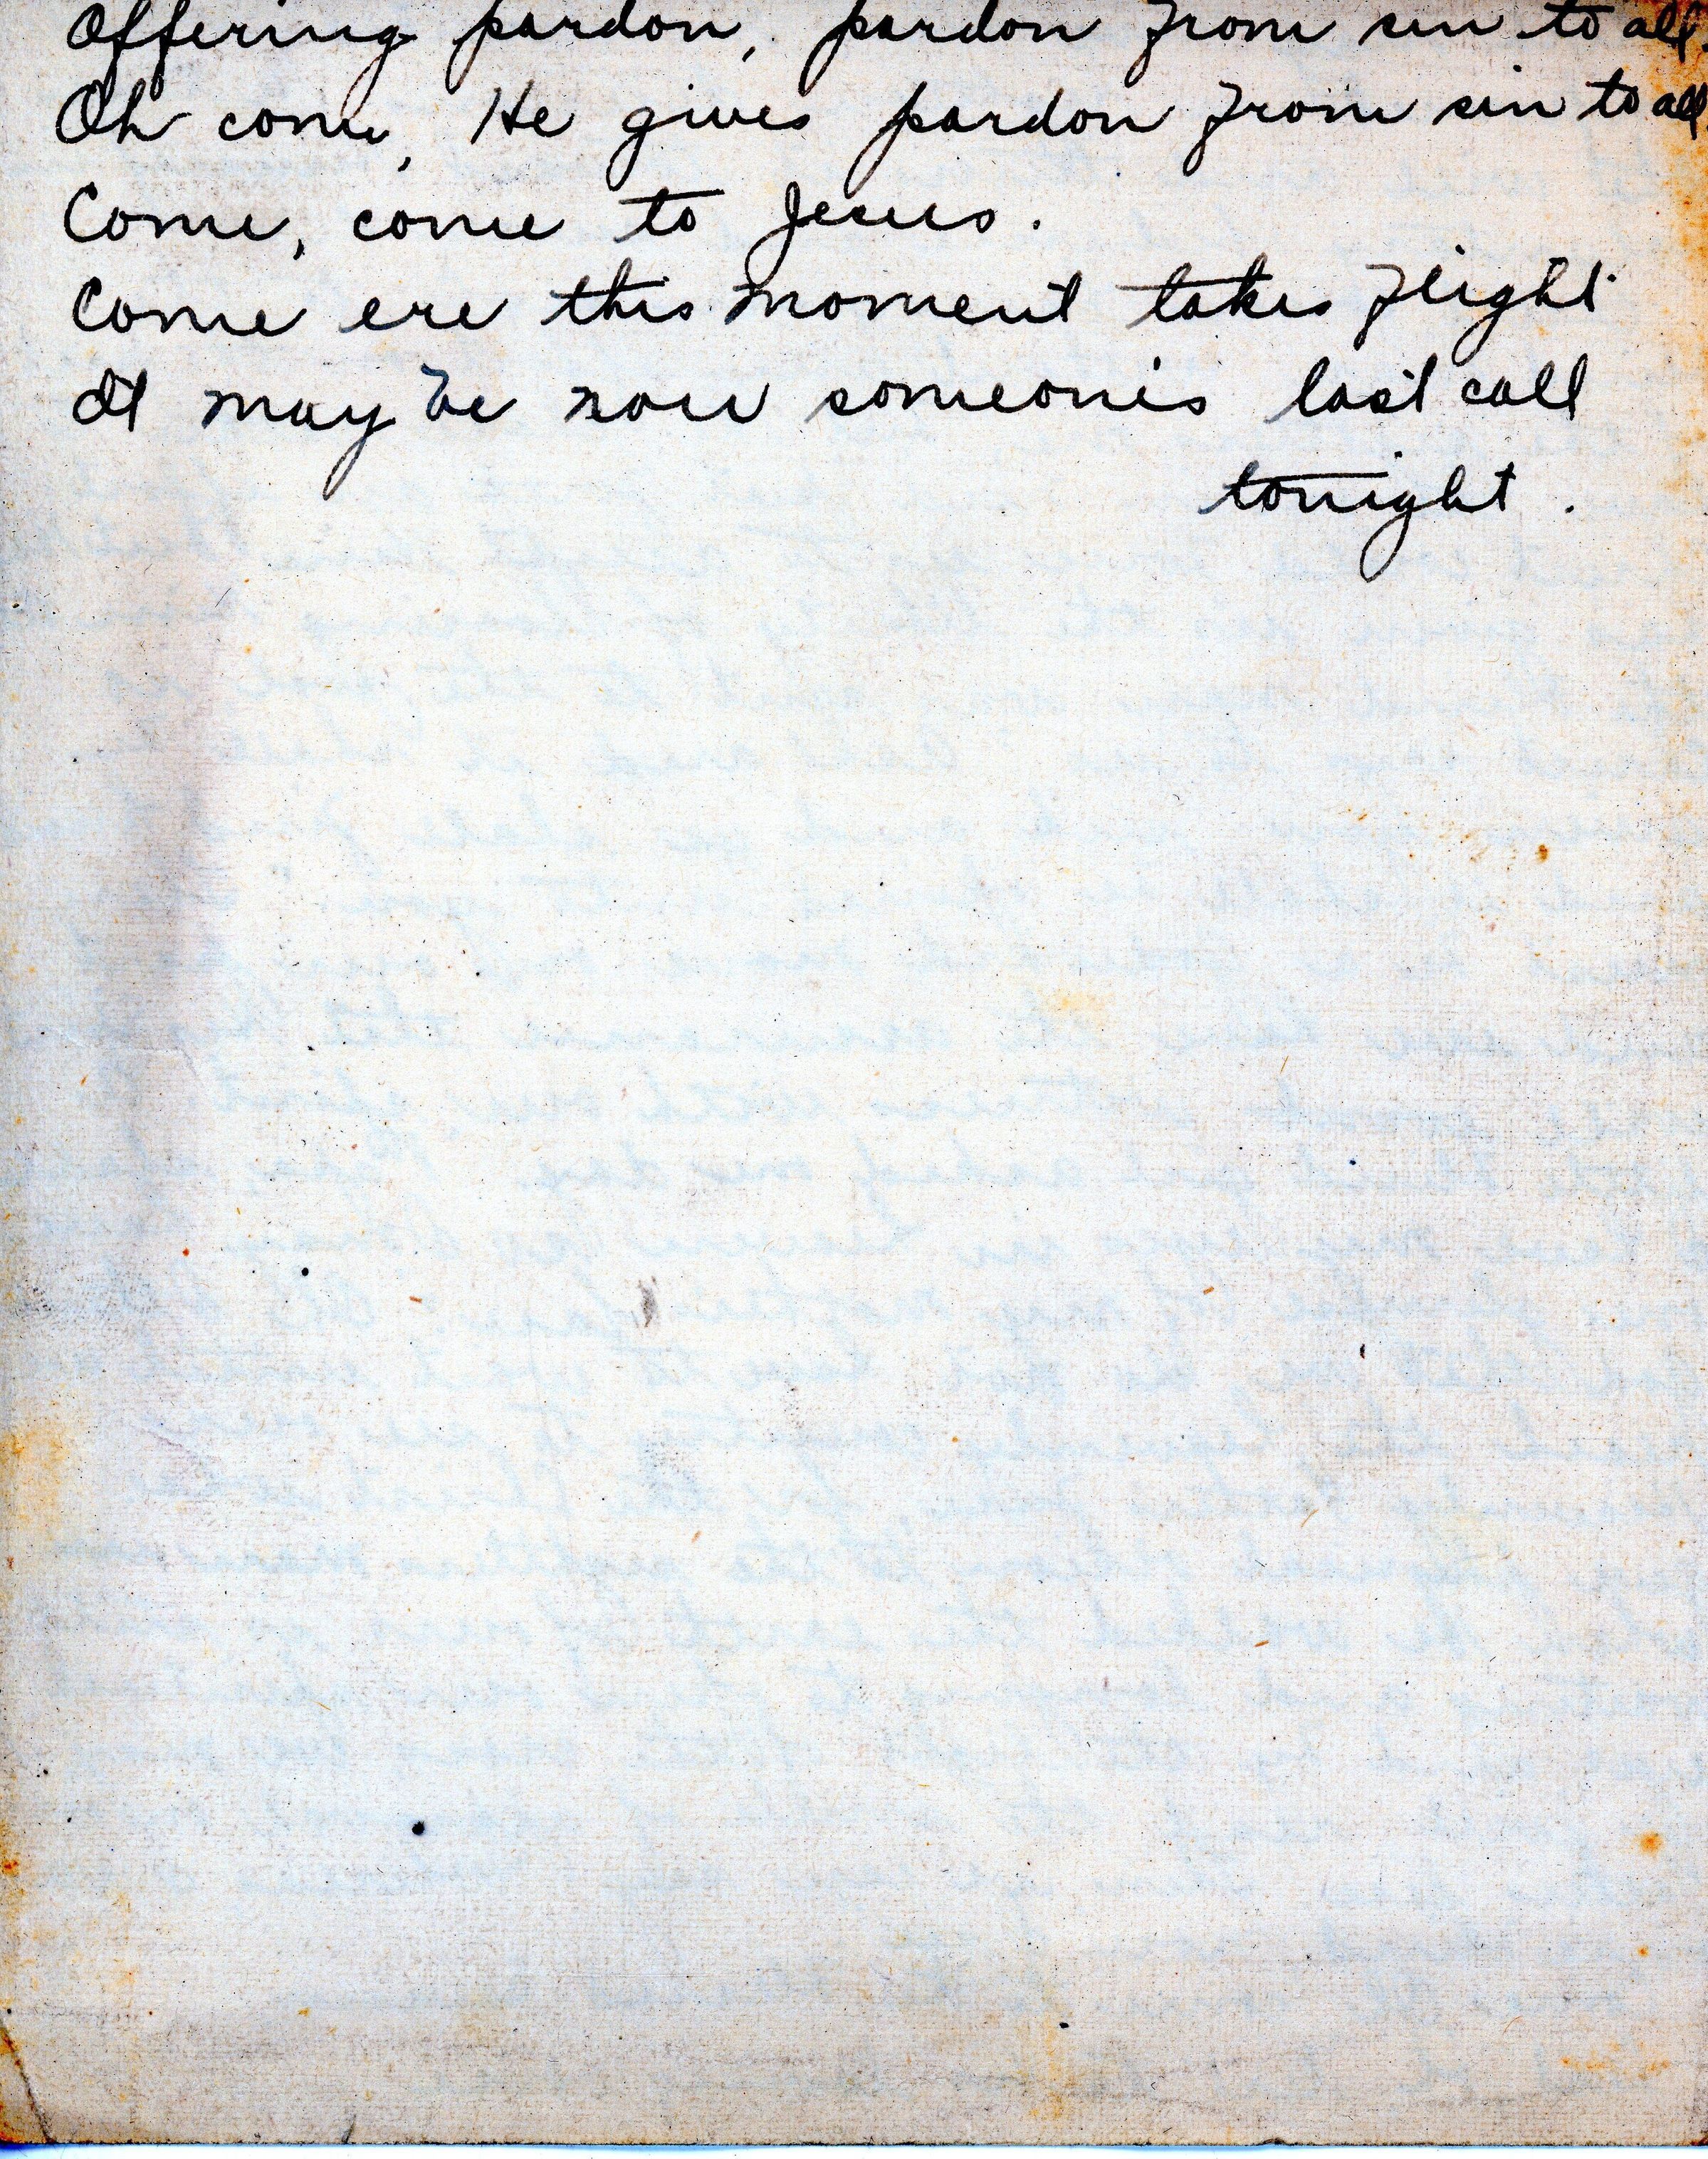 Offering pardon, pardon from sin to all.
Oh come, He gives pardon from sin to all
Come, come to Jesus.
Come ere this moment takes flight
It may be now someone's last call
tonight.